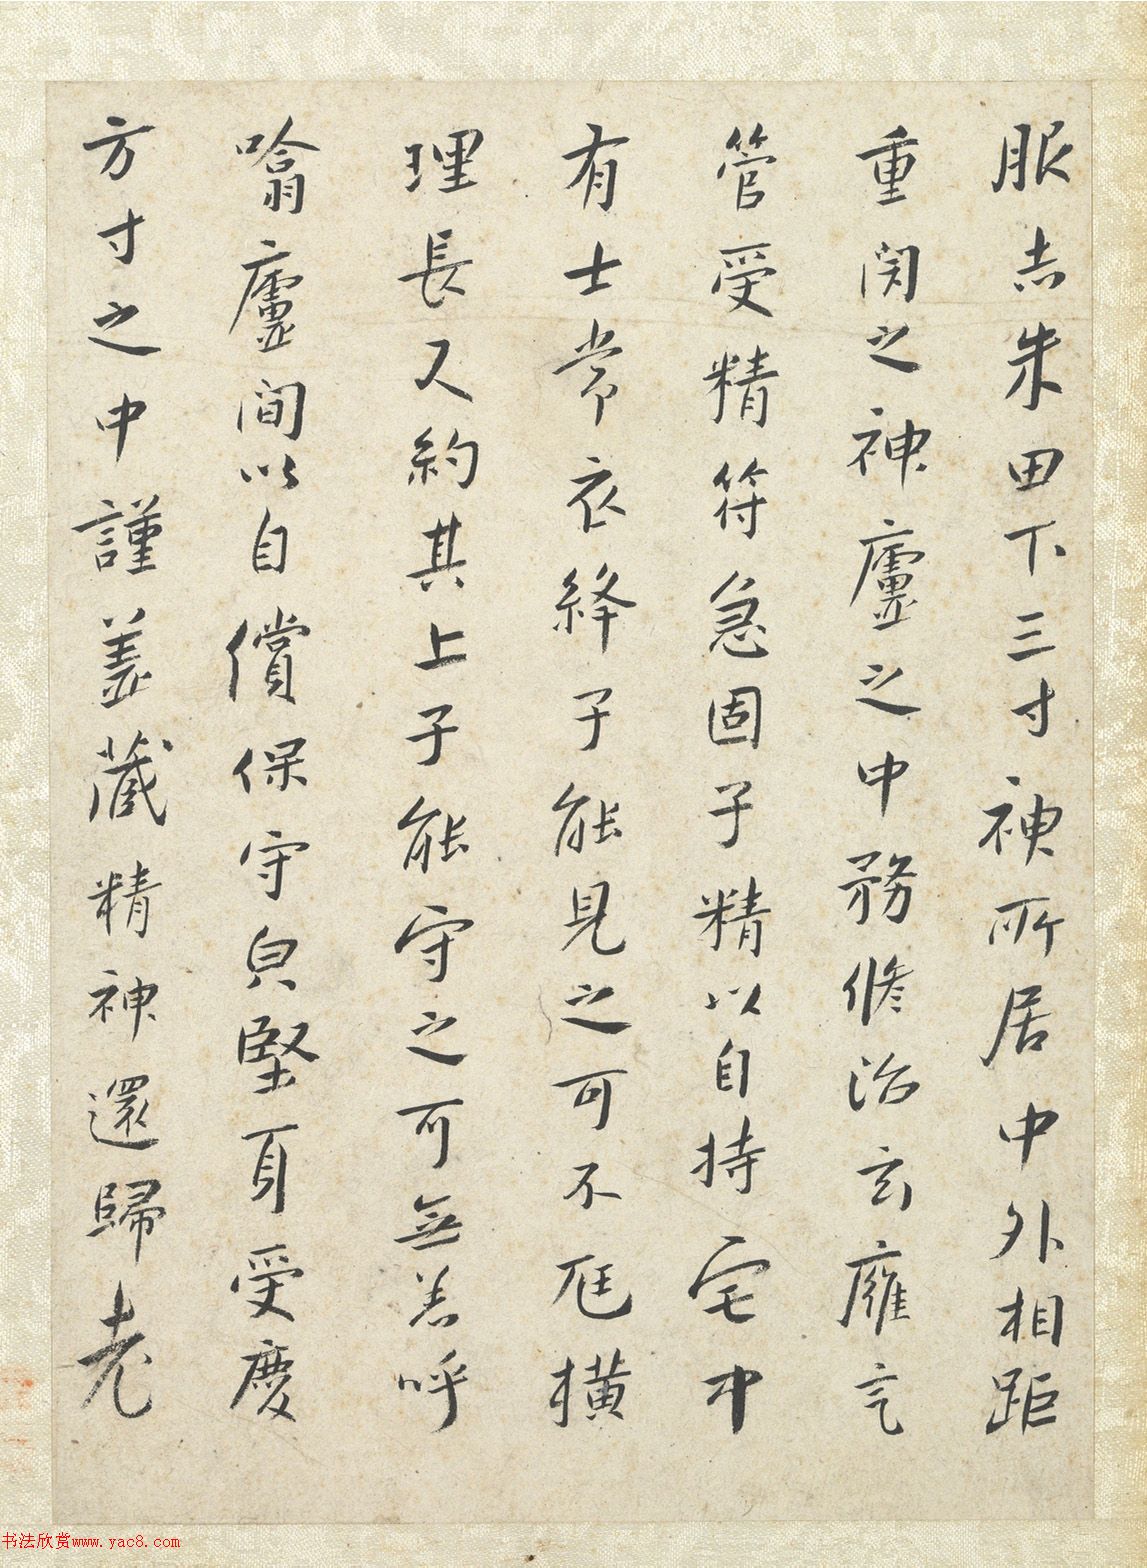 服志朱田下三寸神所居中外相距
重関之神廬之中務脩治玄廱氣
管受精符急固子精以自持宅中
有士常衣絳子能見之可不尫橫
理長又約其上子能守之可無恙呼
噏廬間以自償保守皃堅身受慶
方寸之中謹盖藏精神還歸老
书法欣赏www.yac8.com